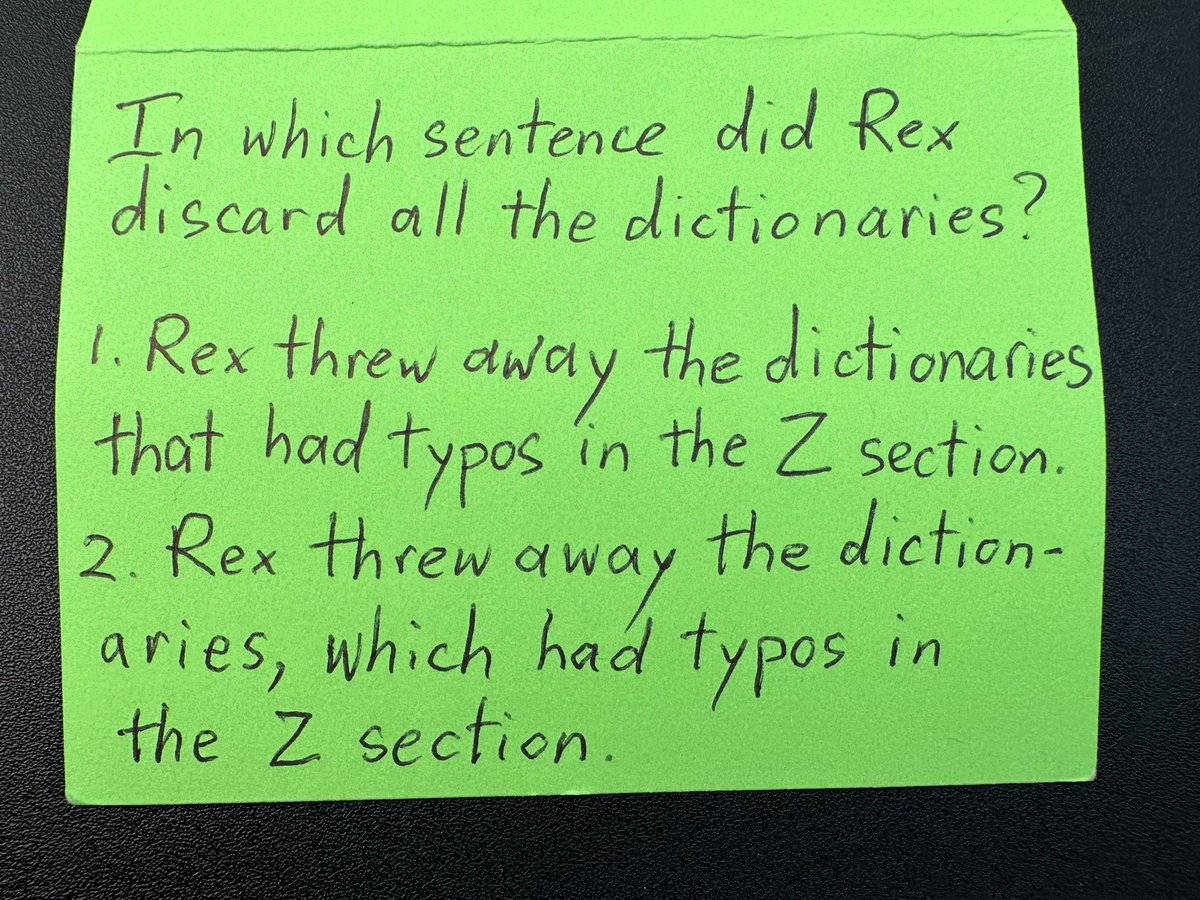 In which sentence did Rex
discard all the dictionaries?
1. Rex threw away the dictionaries
that had typos in the Z section.
2. Rex threw away the diction-
aries, which had typos in
the Z section.